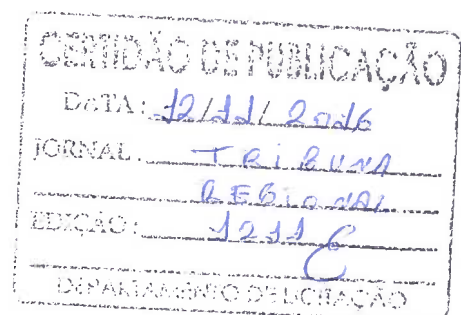 CERTIDÃO DE PUBLICAÇÃO
DATA: 12/11/2016
JORNAL: TRIBUNA
REGIONAL
EDIÇÃO: 1211
DEPARTAMENTO DE LICITAÇÃO